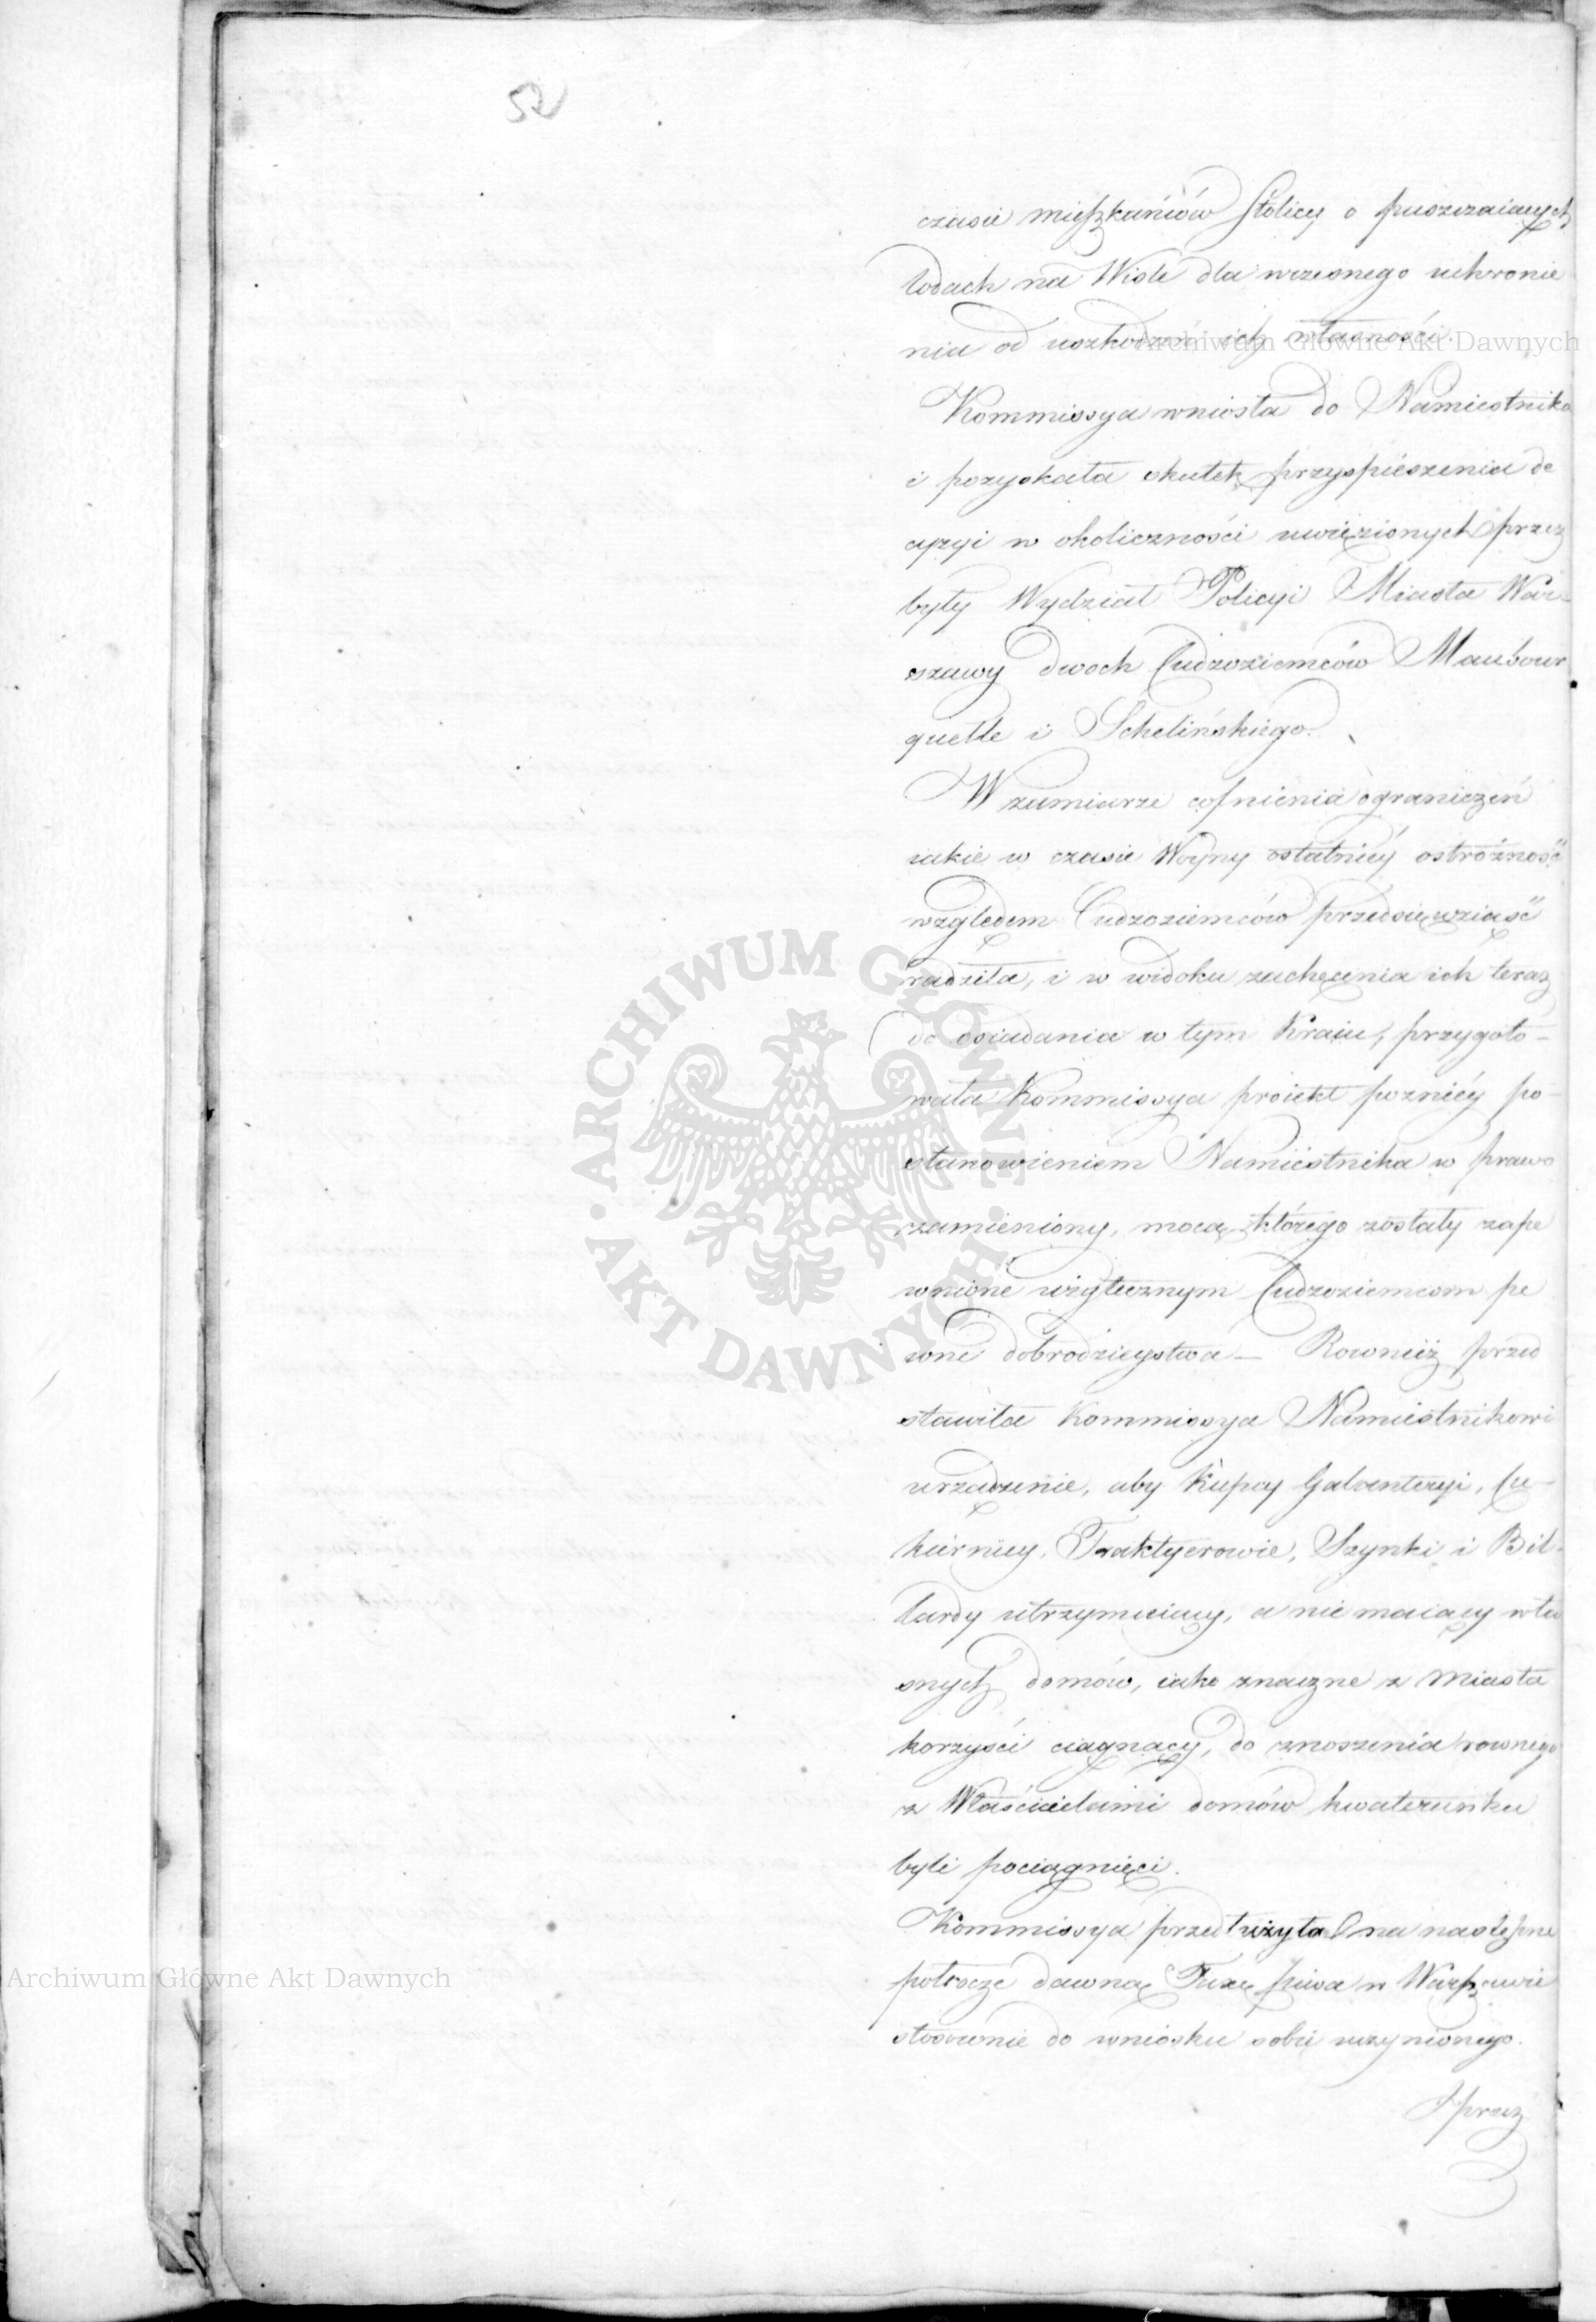 52
czasie mieszkańców Stolicy o puszczaiących
lodach na Wiśle dla wczesnego uchronie
nia od uszkodzeń ich własności.
Archiwum Główne Akt Dawnych
Kommissya wniosła do Namiestnika
i pozyskała skutek przyspieszenia de
cyzyi w okoliczności uwięzionych przez
były Wydział Policyi Miasta War-
szawy dwoch Cudzoziemców Maubour
guelle i Schelińskiego.
W zamiarze cofnienia ograniczeń
iakie w czasie Woyny ostatniéy ostrożność
względem Cudzoziemców przedsięwziąść
radziła, i w widoku zachęcenia ich teraz
do osiadania w tym Kraiu, przygoto-
wała Kommissya proiekt pozniéy po-
stanowieniem Namiestnika w prawo
zamieniony, mocą którego zostały zape
wnione użytecznym Cudzoziemcom pe
wne dobrodzieystwa — Rownież przed
stawiła Kommissya Namiestnikowi
urządzenie, aby Kupcy Galanteryi, Cu-
kiernicy, Traktyerowie, Szynki i Bil-
lardy utrzymuiący, a nie maiący wła
snych domów, iako znaczne z Miasta
korzyści ciągnący, do znoszenia rownego
z Właścicielami domów kwaterunku
byli pociągnięci.
Kommissya przedłużyła na następne
Archiwum Główne Akt Dawnych
połrocze dawną Taxę piwa w Warszawie
stosownie do wniosku sobie uczynionego.
przez
ARCHIWUM GŁÓWNE
AKT DAWNYCH